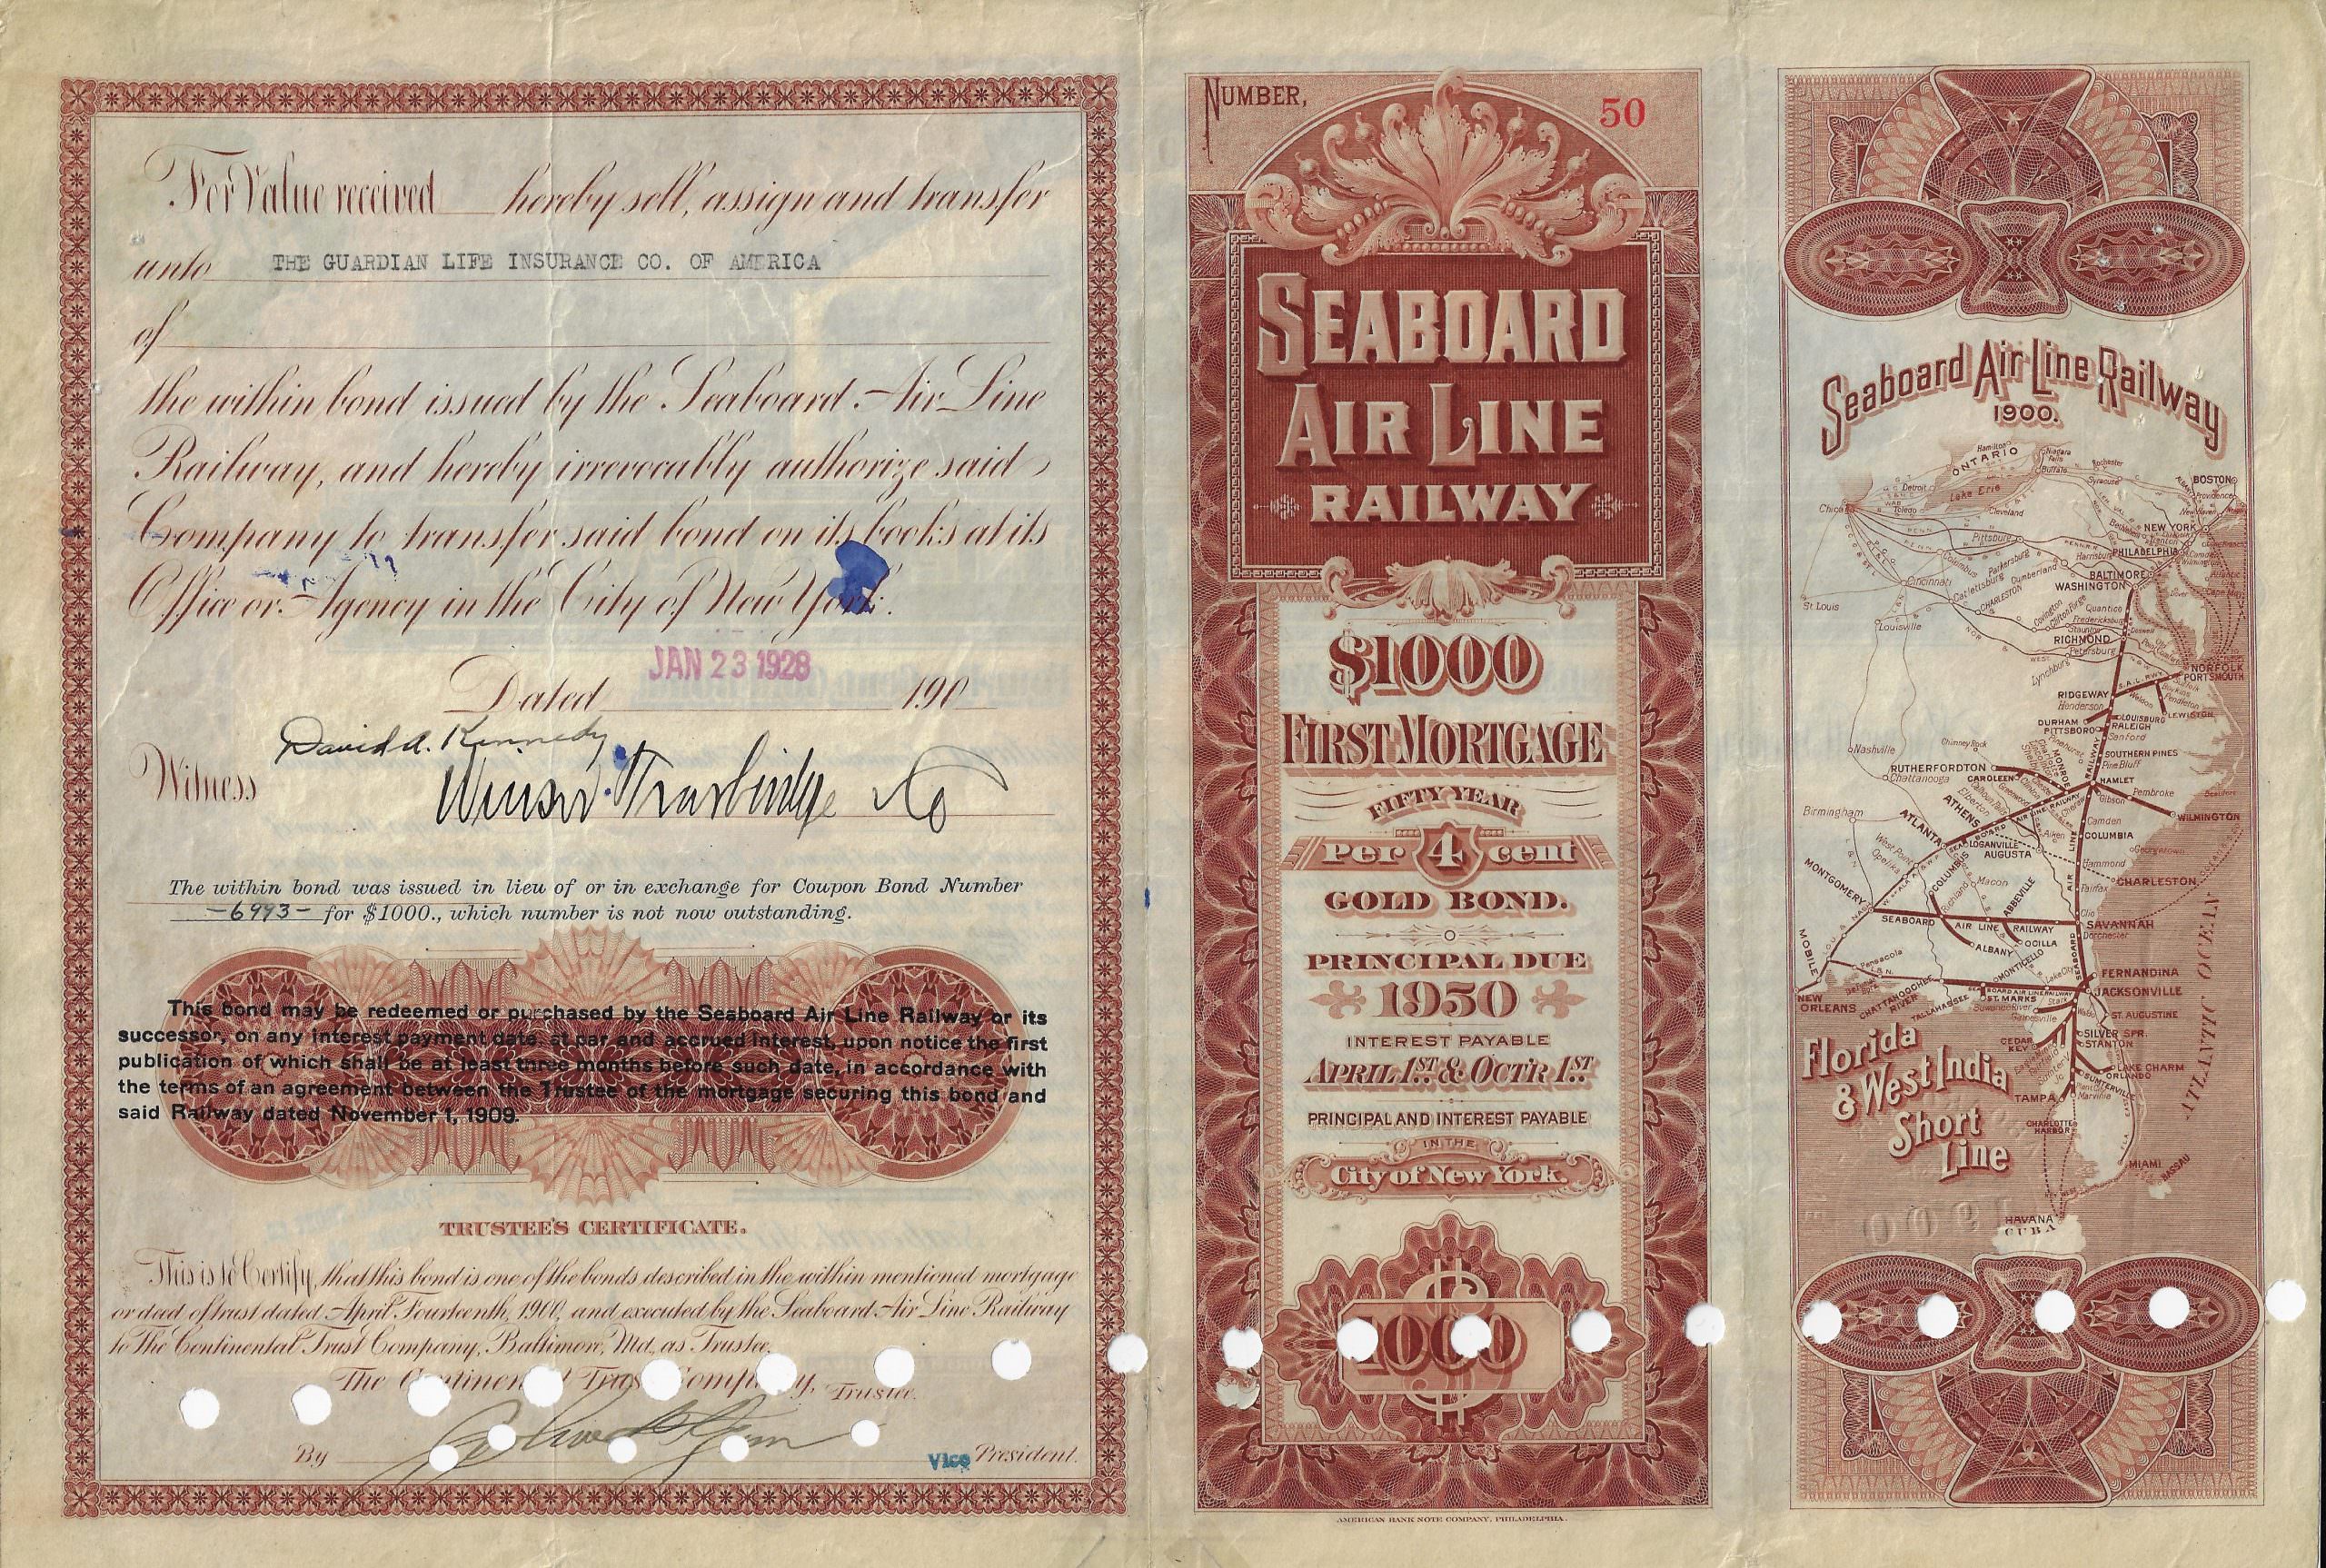 For Value received hereby sell, assign and transfer
unto THE GUARDIAN LIFE INSURANCE CO. OF AMERICA
of
the within bond issued by the Seaboard Air Line
Railway, and hereby irrevocably authorize said
Company to transfer said bond on its books at its
Office or Agency in the City of New York.
JAN 23 1928
Dated 190
David A. Kennedy
Witness
The within bond was issued in lieu of or in exchange for Coupon Bond Number
-6993- for $1000., which number is not now outstanding.
This bond may be redeemed or purchased by the Seaboard Air Line Railway or its
successor, on any interest payment date, at par and accrued interest, upon notice the first
publication of which shall be at least three months before such date, in accordance with
the terms of an agreement between the Trustee of the mortgage securing this bond and
said Railway dated November 1, 1909.
TRUSTEE'S CERTIFICATE.
This is to Certify, that this bond is one of the bonds described in the within mentioned mortgage
or deed of trust dated April Fourteenth, 1900, and executed by the Seaboard Air Line Railway
to The Continental Trust Company, Baltimore, Md., as Trustee.
The Continental Trust Company, Trustee.
By Vice President.
NUMBER,
50
SEABOARD
AIR LINE
RAILWAY
$1000
FIRST MORTGAGE
FIFTY YEAR
Per 4 cent
GOLD BOND.
PRINCIPAL DUE
1950
INTEREST PAYABLE
APRIL 1ST & OCTR 1ST
PRINCIPAL AND INTEREST PAYABLE
IN THE
City of New York.
$
1000
AMERICAN BANK NOTE COMPANY, PHILADELPHIA.
Seaboard Air Line Railway
1900.
Hamilton
ONTARIO
Niagara Falls
Buffalo
Rochester
Syracuse
BOSTON
Providence
Detroit
Lake Erie
Toledo
Cleveland
New Haven
NEW YORK
Pittsburg
Harrisburg
PHILADELPHIA
Columbus
Parkersburg
Cumberland
BALTIMORE
WASHINGTON
Cincinnati
Catlettsburg
CHARLESTON
St Louis
Louisville
Covington
Clifton Forge
Quantico
Fredericksburg
Staunton
RICHMOND
Petersburg
Lynchburg
NORFOLK
PORTSMOUTH
RIDGEWAY
Henderson
Weldon
LEWISTON
DURHAM
LOUISBURG
RALEIGH
PITTSBORO
Sanford
Nashville
Chimney Rock
SOUTHERN PINES
Pine Bluff
RUTHERFORDTON
Chattanooga
CAROLEEN
MONROE
HAMLET
Gibson
Pembroke
WILMINGTON
Birmingham
ATHENS
Elberton
Greenwood
ATLANTA
LOGANVILLE
AUGUSTA
Aiken
Camden
COLUMBIA
Georgetown
West Point
Opelika
MONTGOMERY
COLUMBUS
Macon
Hammond
CHARLESTON
Fairfax
Richland
ABBEVILLE
SEABOARD AIR LINE RAILWAY
Clio
SAVANNAH
Dorchester
ALBANY
OCILLA
MOBILE
Pensacola
MONTICELLO
Lake City
FERNANDINA
JACKSONVILLE
NEW ORLEANS
CHATTAHOOCHEE RIVER
TALLAHASSEE
ST. MARKS
Stark
ST. AUGUSTINE
Gainesville
SILVER SPR.
STANTON
CEDAR KEY
LAKE CHARM
ORLANDO
SUMTERVILLE
TAMPA
CHARLOTTE HARBOR
MIAMI
NASSAU
HAVANA
CUBA
ATLANTIC OCEAN
Florida
& West India
Short
Line